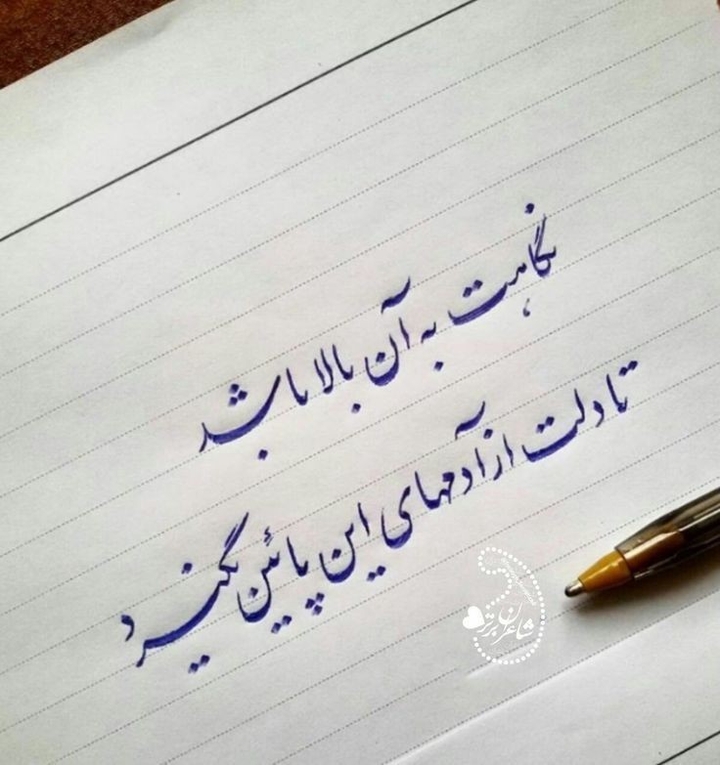 نگاهت به آن بالا باشد
تا دلت از آدمهای این پائین نگیرد
شاعران برتر